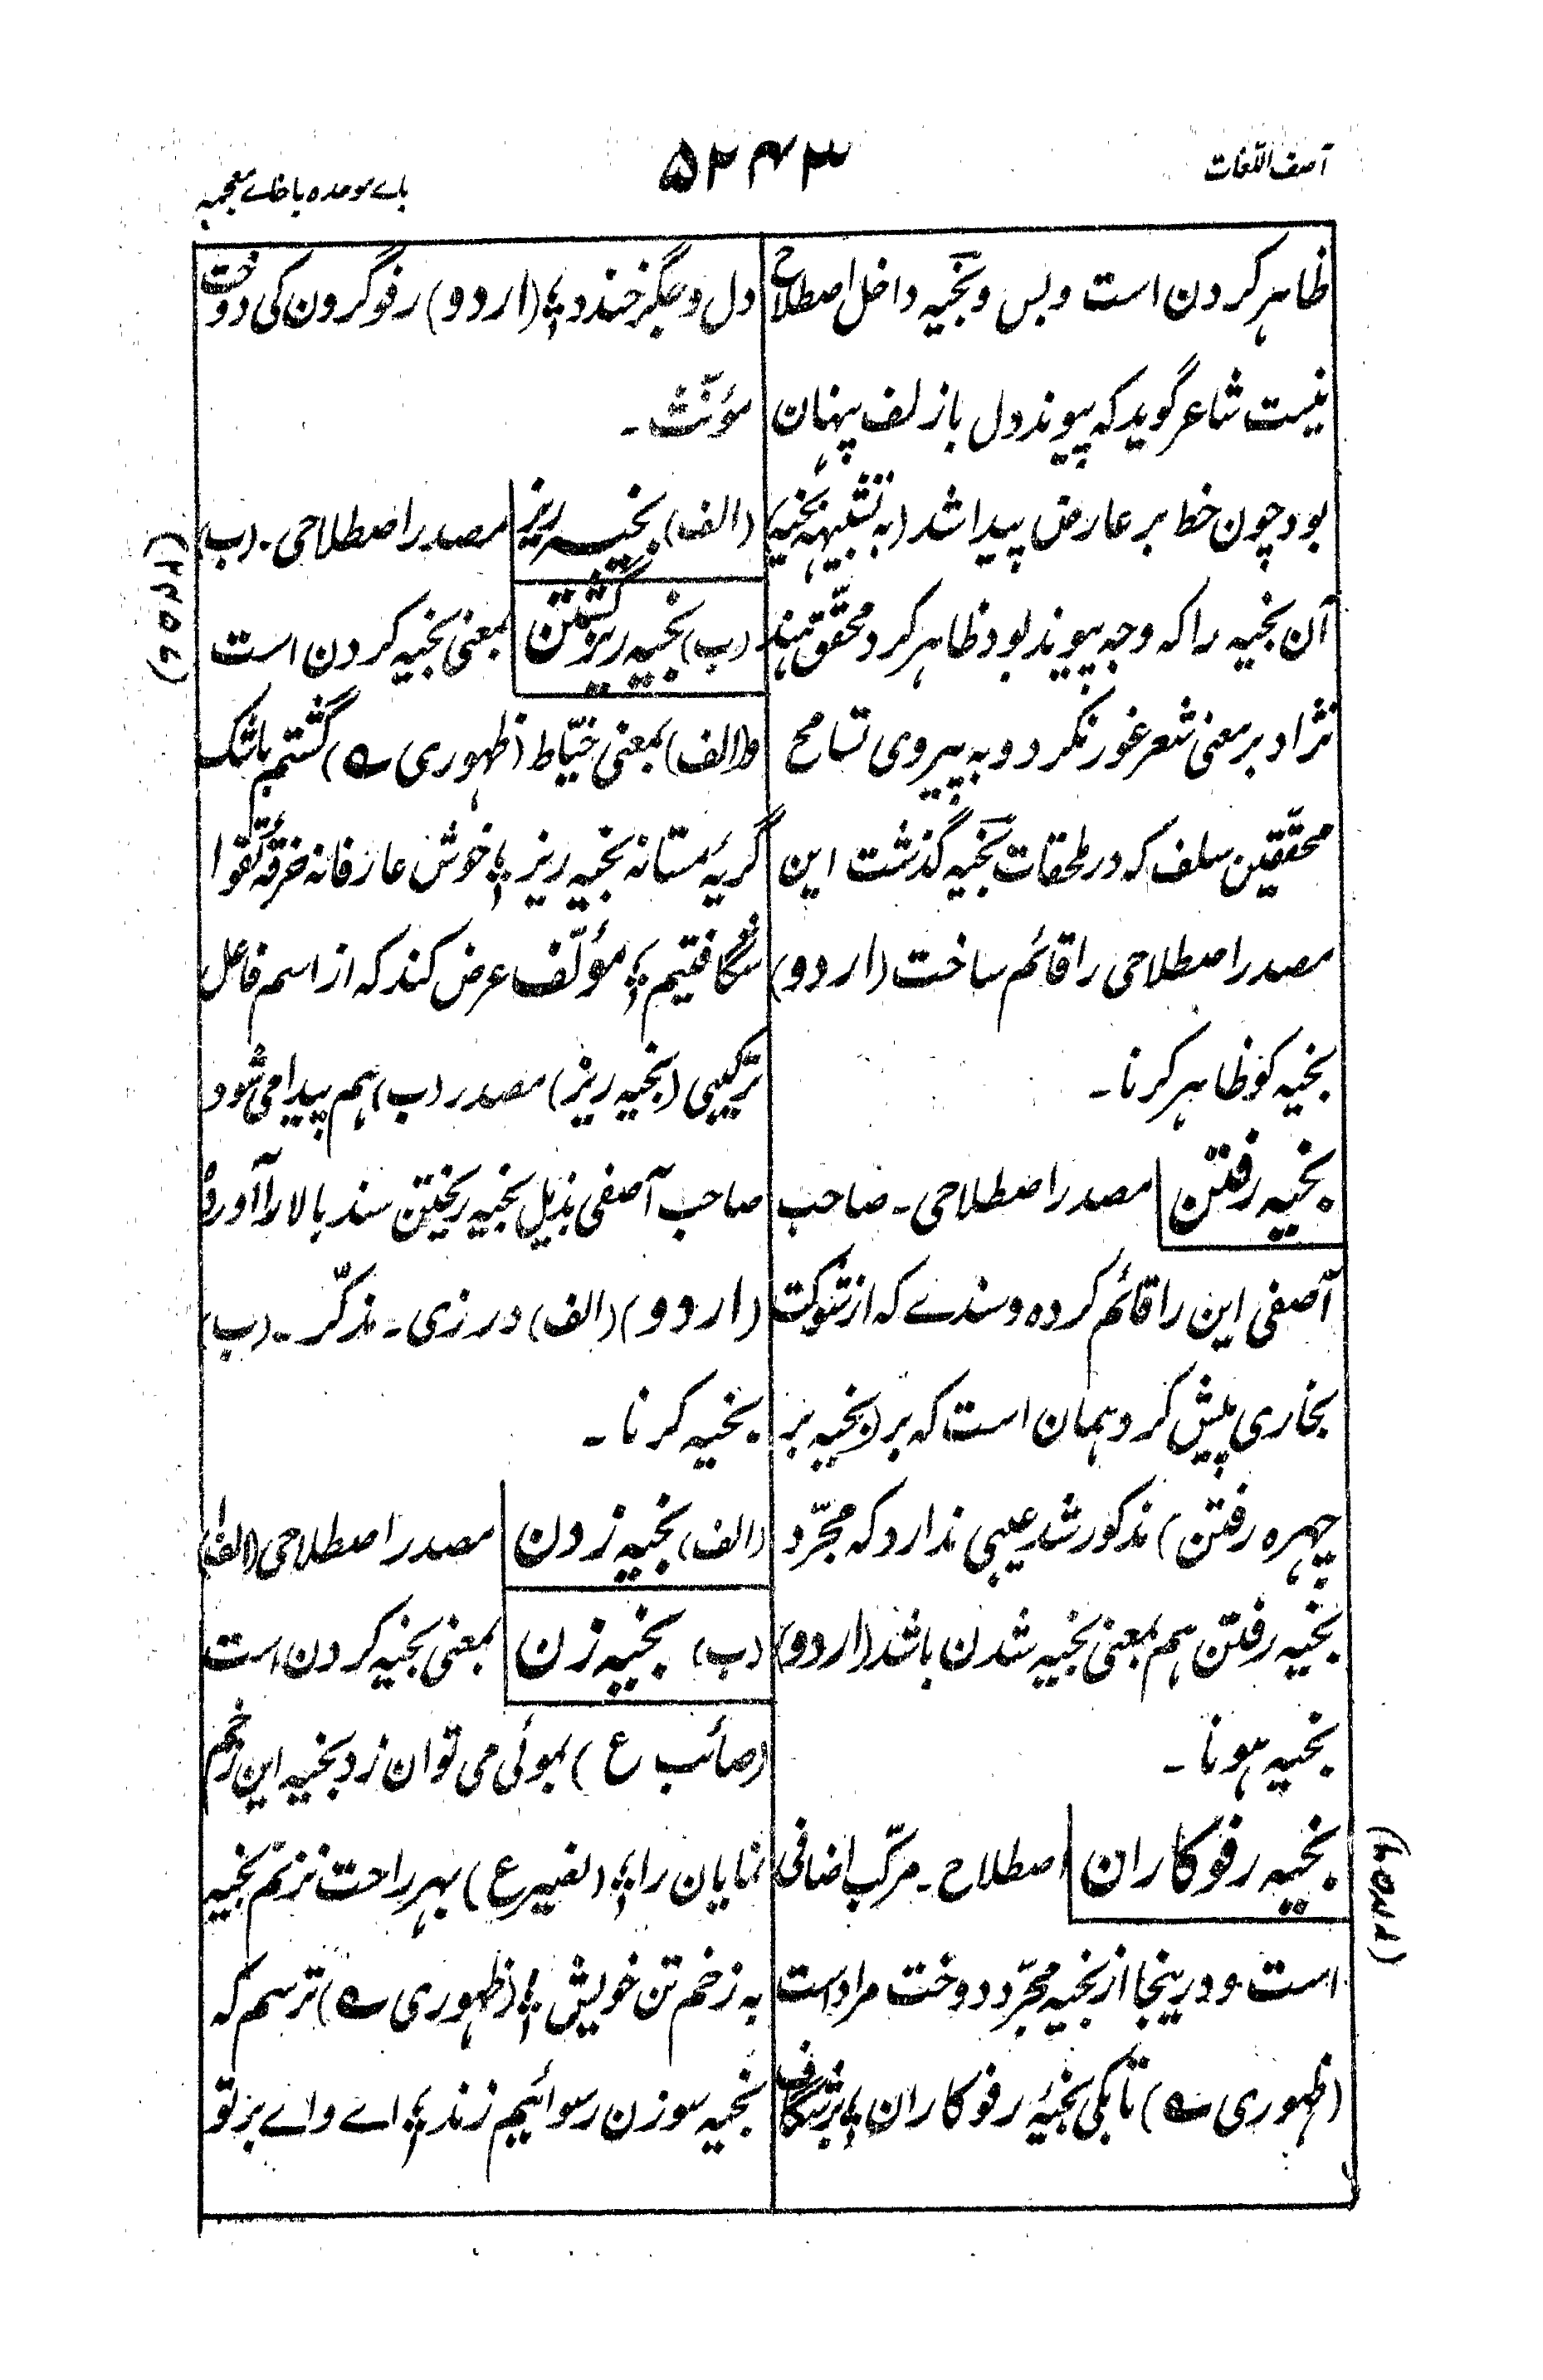 آصف اللغات
۵۲۴۳
باے موحدہ باخاے معجمہ
ظاہر کردن است وبس و بخیہ داخل اصطلاح
نیست شاعر گوید کہ پیوند دل با زلف پنہان
بود چون خط بر عارض پیدا شد (بہ تشبیہ بخیہ)
آن بخیہ را کہ وجہ پیوند بود ظاہر کرد محقق ہند
نژاد بر معنی شعر غور نکرد و بہ پیروی تسامح
محققین سلف کہ در ملحقات بخیہ گذشت این
مصدر اصطلاحی را قائم ساخت (اردو)
بخیہ کو ظاہر کرنا۔
بخیہ رفتن مصدر اصطلاحی۔ صاحب
آصفی این را قائم کردہ و سندے کہ از شوکت
بخاری پیش کرد ہمان است کہ بر (بخیہ بر
چہرہ رفتن) مذکور شد عیبی ندارد کہ مجرّد
بخیہ رفتن ہم بمعنی بخیہ شدن باشد (اردو)
بخیہ ہونا۔
بخیہ رفوکاران اصطلاح۔ مرکّب اضافی
است و درینجا از بخیہ مجرّد دوخت مراد است
(ظہوری ؎) تا بکی بخیۂ رفوکاران ؛ برشگاف
دل و جگر خندد ؛ (اردو) رفوگرون کی دوخت
مؤنّث۔
(الف) بخیہ ریز مصدر اصطلاحی۔ (ب)
(ب) بخیہ ریز گشتن بمعنی بخیہ کردن است
و (الف) بمعنی خیّاط (ظہوری ؎) گشتم باشک
گریۂ مستانہ بخیہ ریز ؛ خوش عارفانہ خرقۂ تقوا
شگافتیم ؛ مؤلّف عرض کند کہ از اسم فاعل
ترکیبی (بخیہ ریز) مصدر (ب) ہم پیدا می شود
صاحب آصفی بذیل بخیہ ریختن سند بالا را آوردہ
(اردو) (الف) درزی۔ مذکّر۔ (ب)
بخیہ کرنا۔
(الف) بخیہ زدن مصدر اصطلاحی (الف)
(ب) بخیہ زن بمعنی بخیہ کردن است
(صائب ع) بموئی می توان زد بخیہ این زخم
نمایان را ؛ (لغیرہ ع) بہر راحت نزنم بخیہ
بہ زخم تن خویش ؛ (ظہوری ؎) ترسم کہ
بخیہ سوزن رسوائیم زند ؛ اے واے بر تو